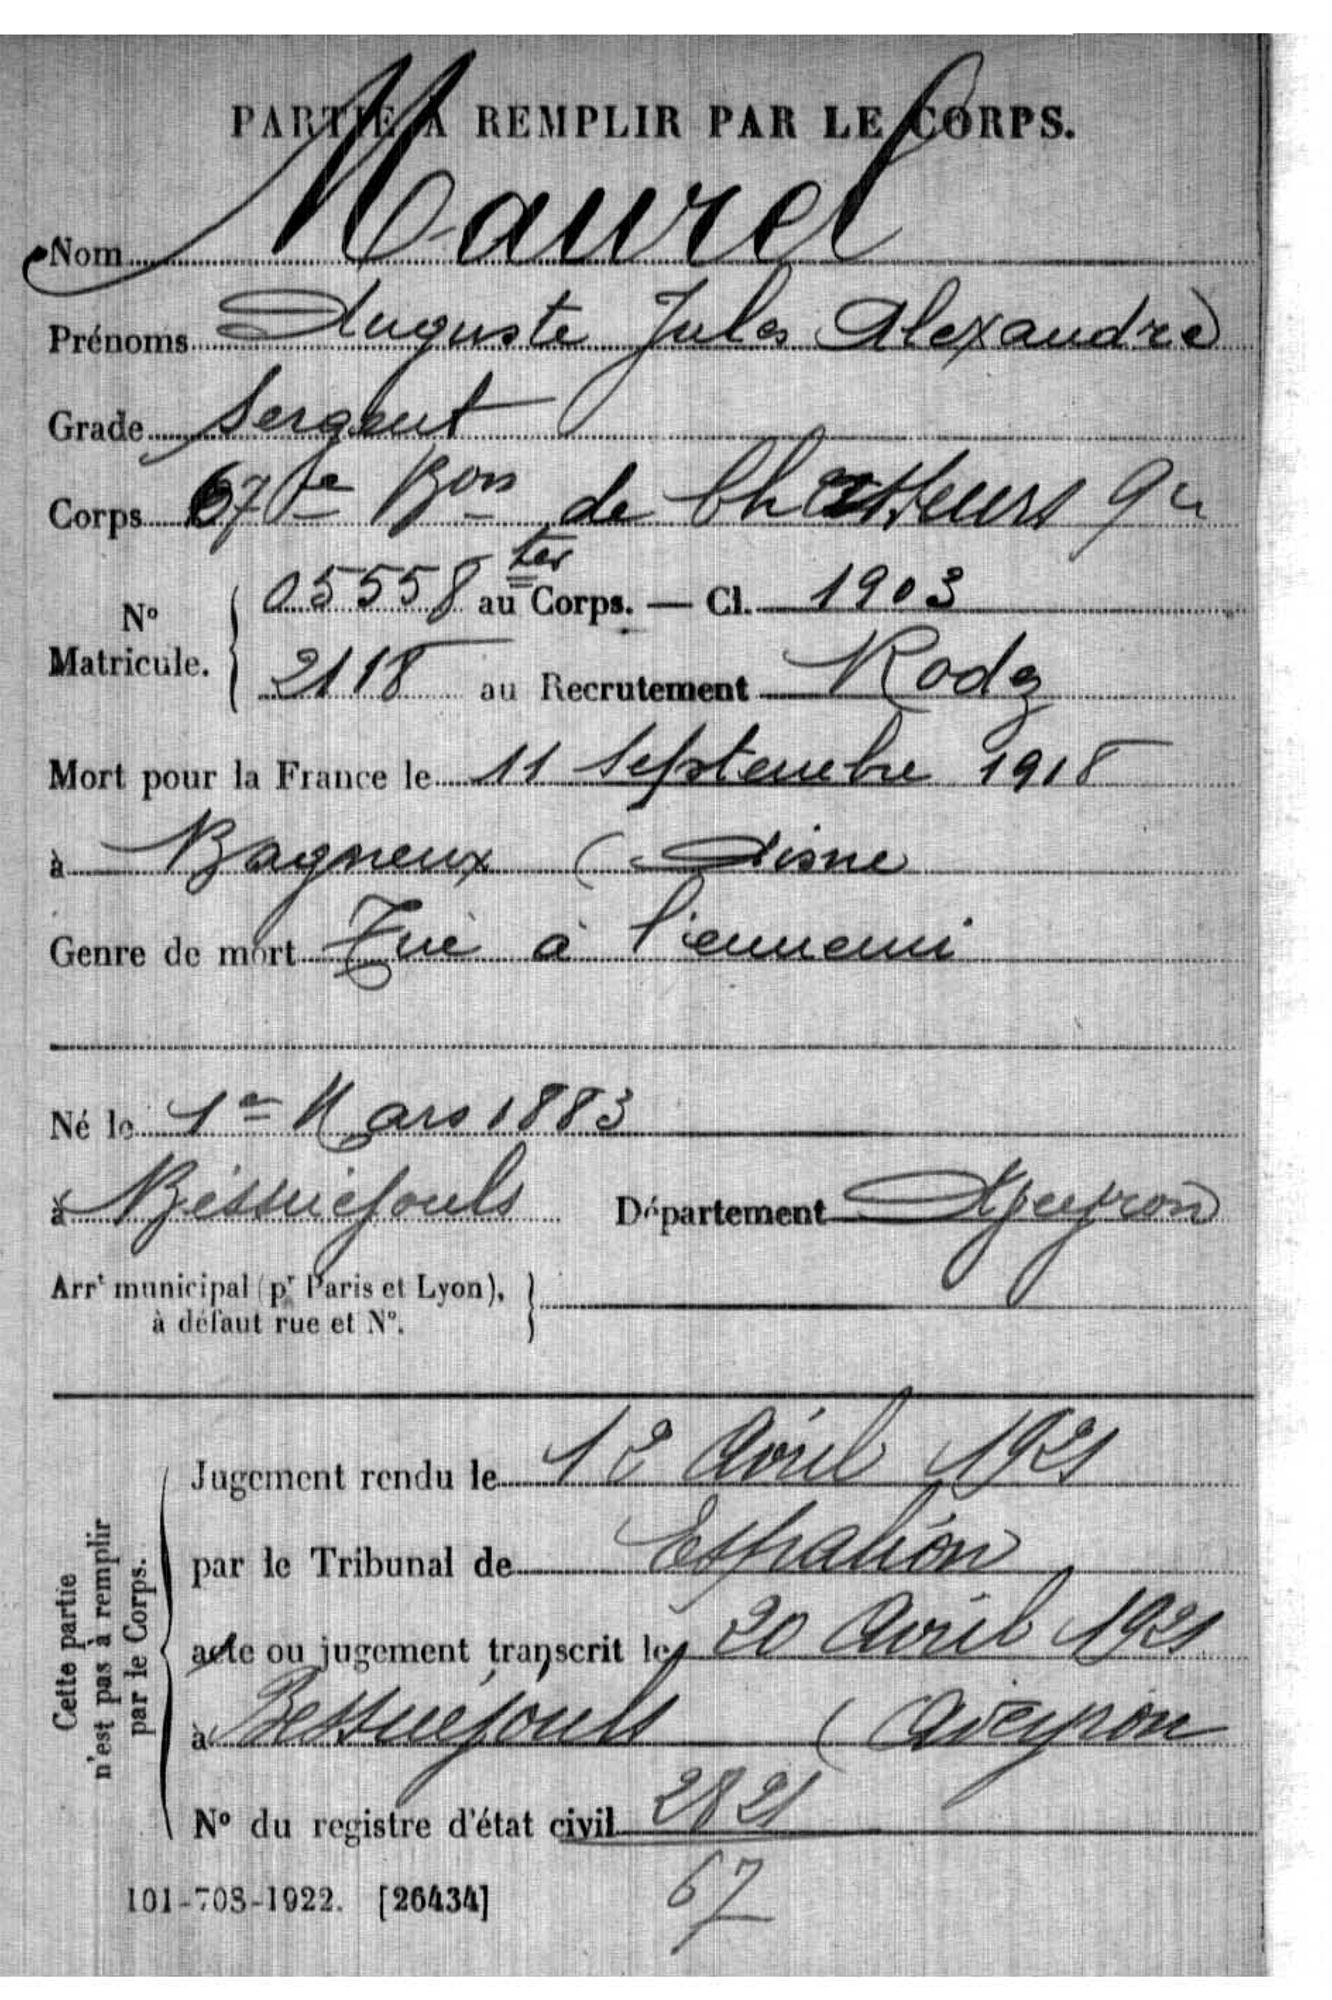 PARTIE À REMPLIR PAR LE CORPS.
Nom Maurel
Prénoms Auguste Jules Alexandre
Grade Sergent
Corps 67e Bon de Chasseurs
ter
N° Matricule. 05558 au Corps. — Cl. 1903
2118 au Recrutement Rodez
Mort pour la France le 11 Septembre 1918
à Bagneux (Aisne
Genre de mort Tué à l'ennemi
Né le 1er Mars 1883
à Bessuéjouls Département Aveyron
Arrt municipal (pr Paris et Lyon),
à défaut rue et N°.
Cette partie
n'est pas à remplir
par le Corps.
Jugement rendu le 12 Avril 1921
par le Tribunal de Espalion
acte ou jugement transcrit le 20 Avril 1921
à Bessuéjouls (Aveyron
N° du registre d'état civil 2821
67
101-708-1922. [26434]